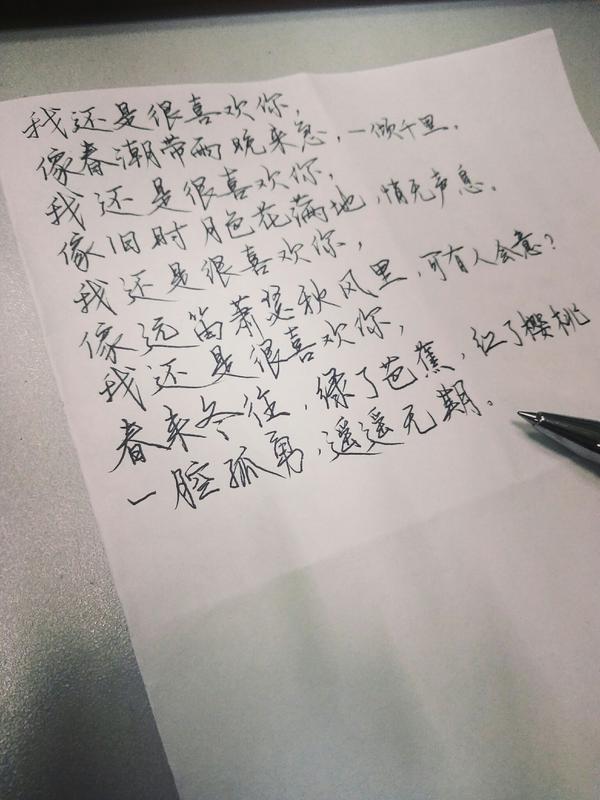 我还是很喜欢你，
像春潮带雨晚来急，一倾千里。
我还是很喜欢你，
像旧时月色花满地，悄无声息。
我还是很喜欢你，
像远笛萧瑟秋风里，可有人会意？
我还是很喜欢你，
春来冬往，绿了芭蕉，红了樱桃
一腔孤勇，遥遥无期。